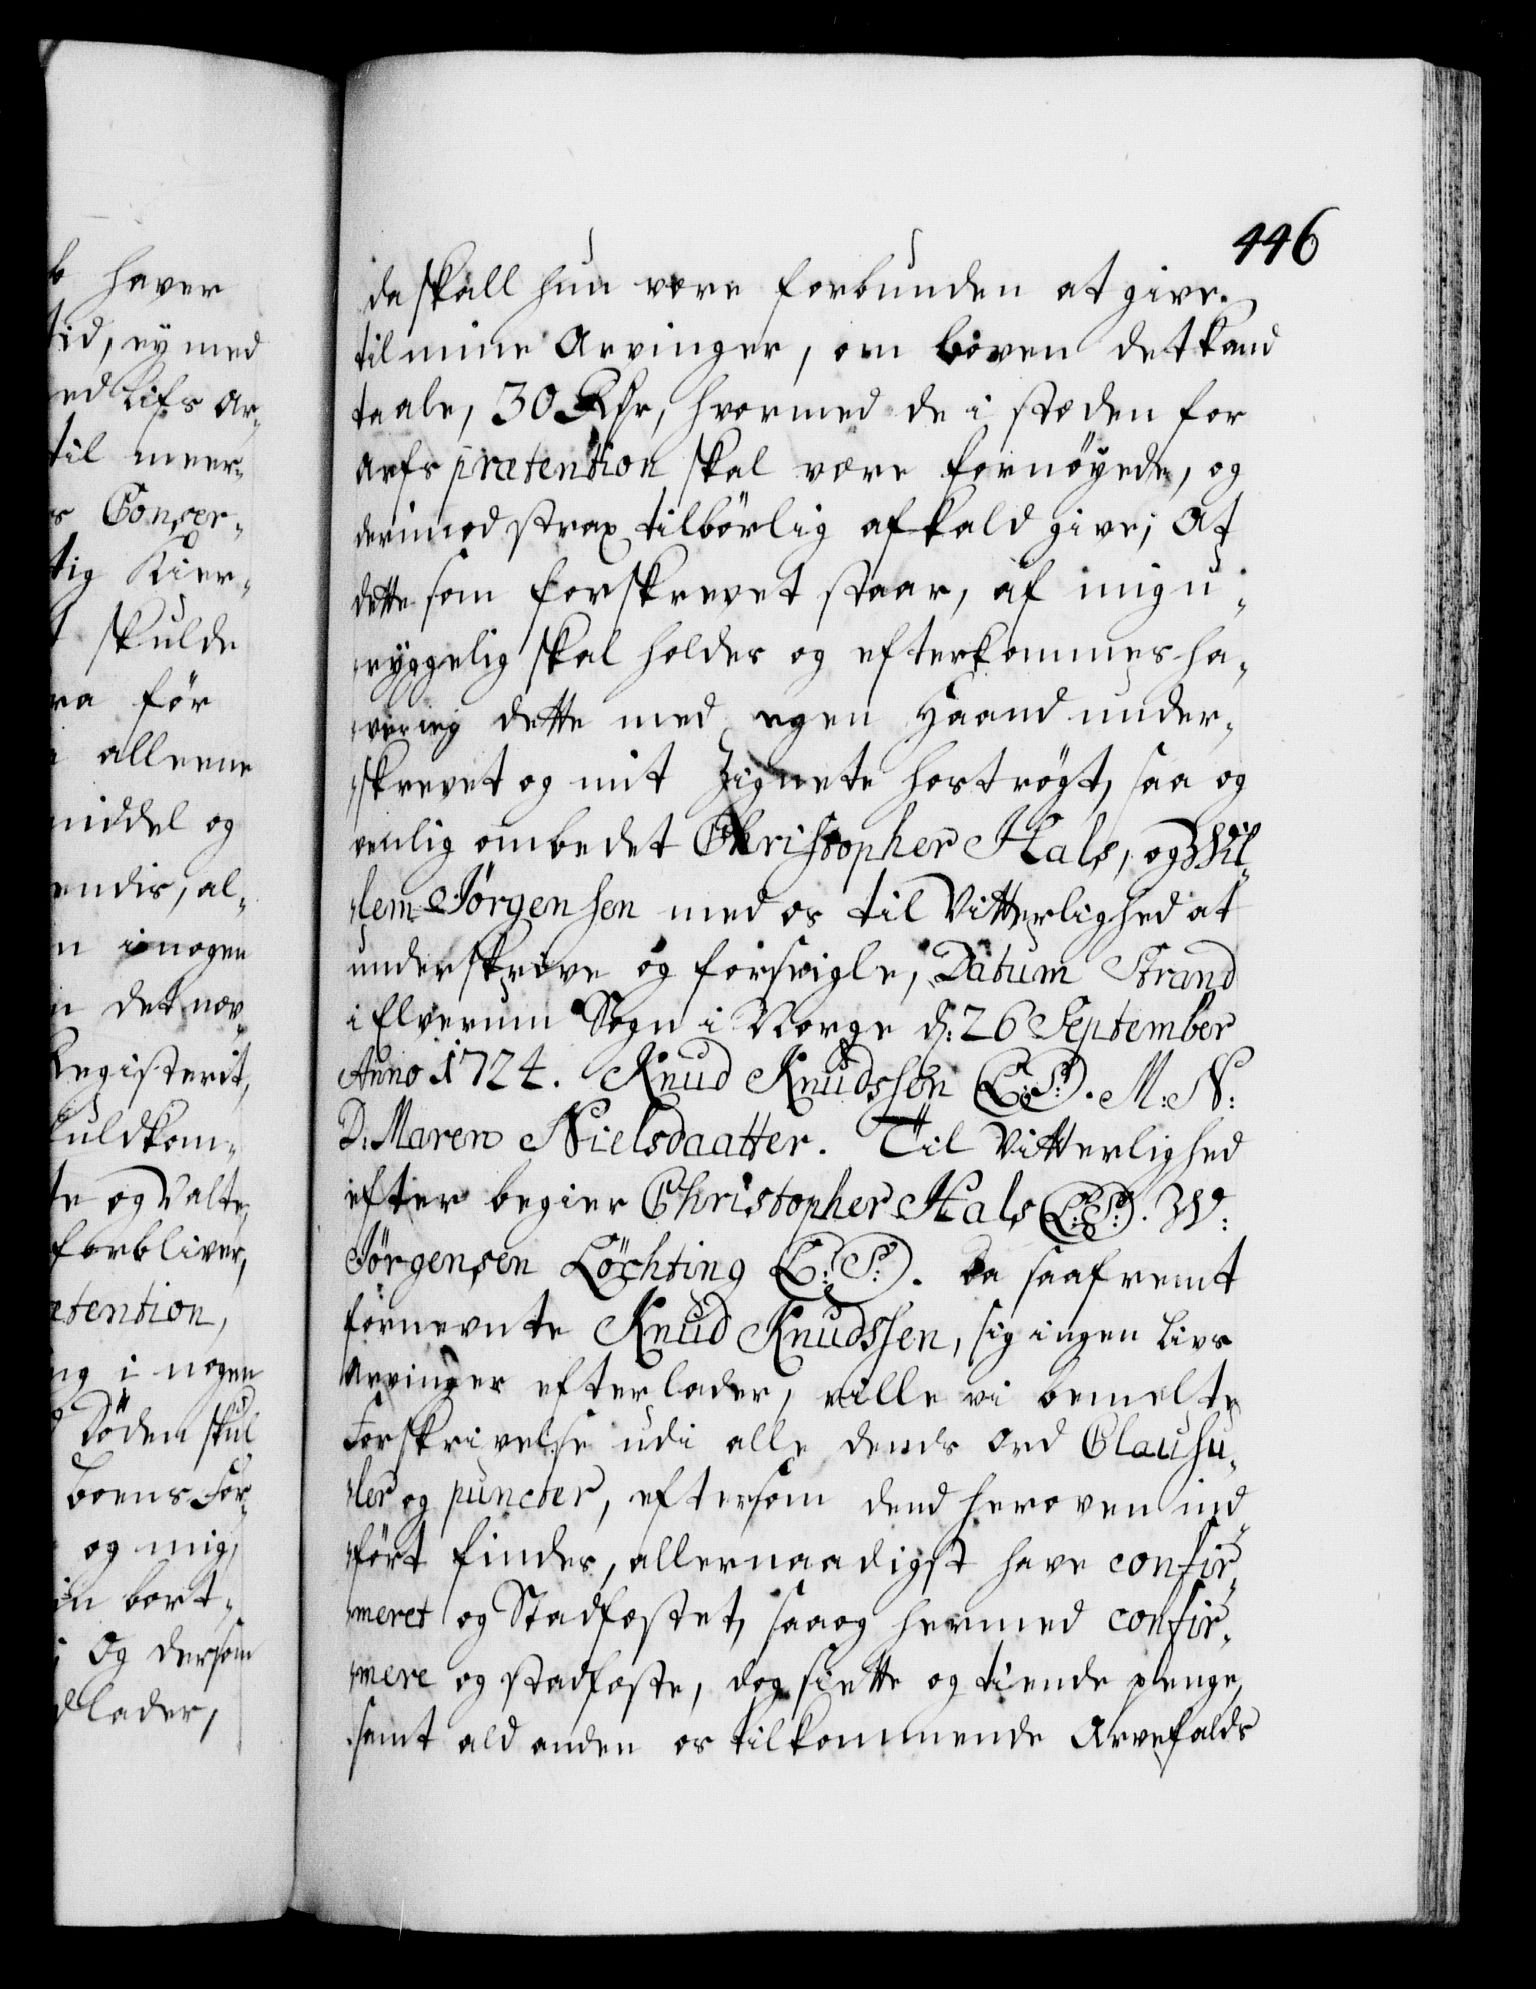 446
da skall hun være forbunden at give
til mine Arvinger, om boven det kand
taale, 30 Rdr, hvormed de i stæden for
arfs prætention skal være fornøyede, og
derimod strax tilbörlig afkald give; At
dette som forskrevet staar, af mig u-
ryggelig skal holdes og efterkommes ha-
ver ieg dette med egen Haand under-
skrevet og mit Zignete hoströgt, saa og
venlig ombedet Christopher Hals, og Wil-
lem Jörgensen med os til Vitterlighed at
underskrive og forseigle, Datum Strand
i Elverum Sogn i Norge d: 26 September
Anno 1724. Knud Knudssen (L:S:). M: N:
D: Maren Nielsdaatter. Til Vitterlighed
efter begier Christopher Hals (L:S:). W:
Jörgensen Löchting (L:S:). Da saafremt
fornevnte Knud Knudssen, sig ingen Livs
Arvinger efterlader, ville vi bemelte
Forskrivelse udi alle dends Ord Clausu-
ler og puncter, eftersom dend heroven ind-
fört findes, allernaadigst have confir-
meret og Stadfæstet, saa og hermed confir-
mere og stadfæste, dog siette og tiende penge,
samt ald anden os tilkommende Arvefalds
haver
tid, ey med
ed Lifs Ar-
til meer-
s Conser-
tig Kier-
t skulde
ra för
alleene
middel og
endis, al-
n i nogen
n det nær-
Registerit,
fuldkom-
te og Valte,
forbliver,
ætention,
ng i nogen
Döden skul
boens For-
og mig,
in bort-
Og dersom
lader,